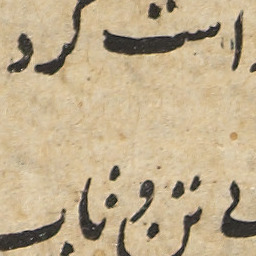 است کرد
تن و تاب